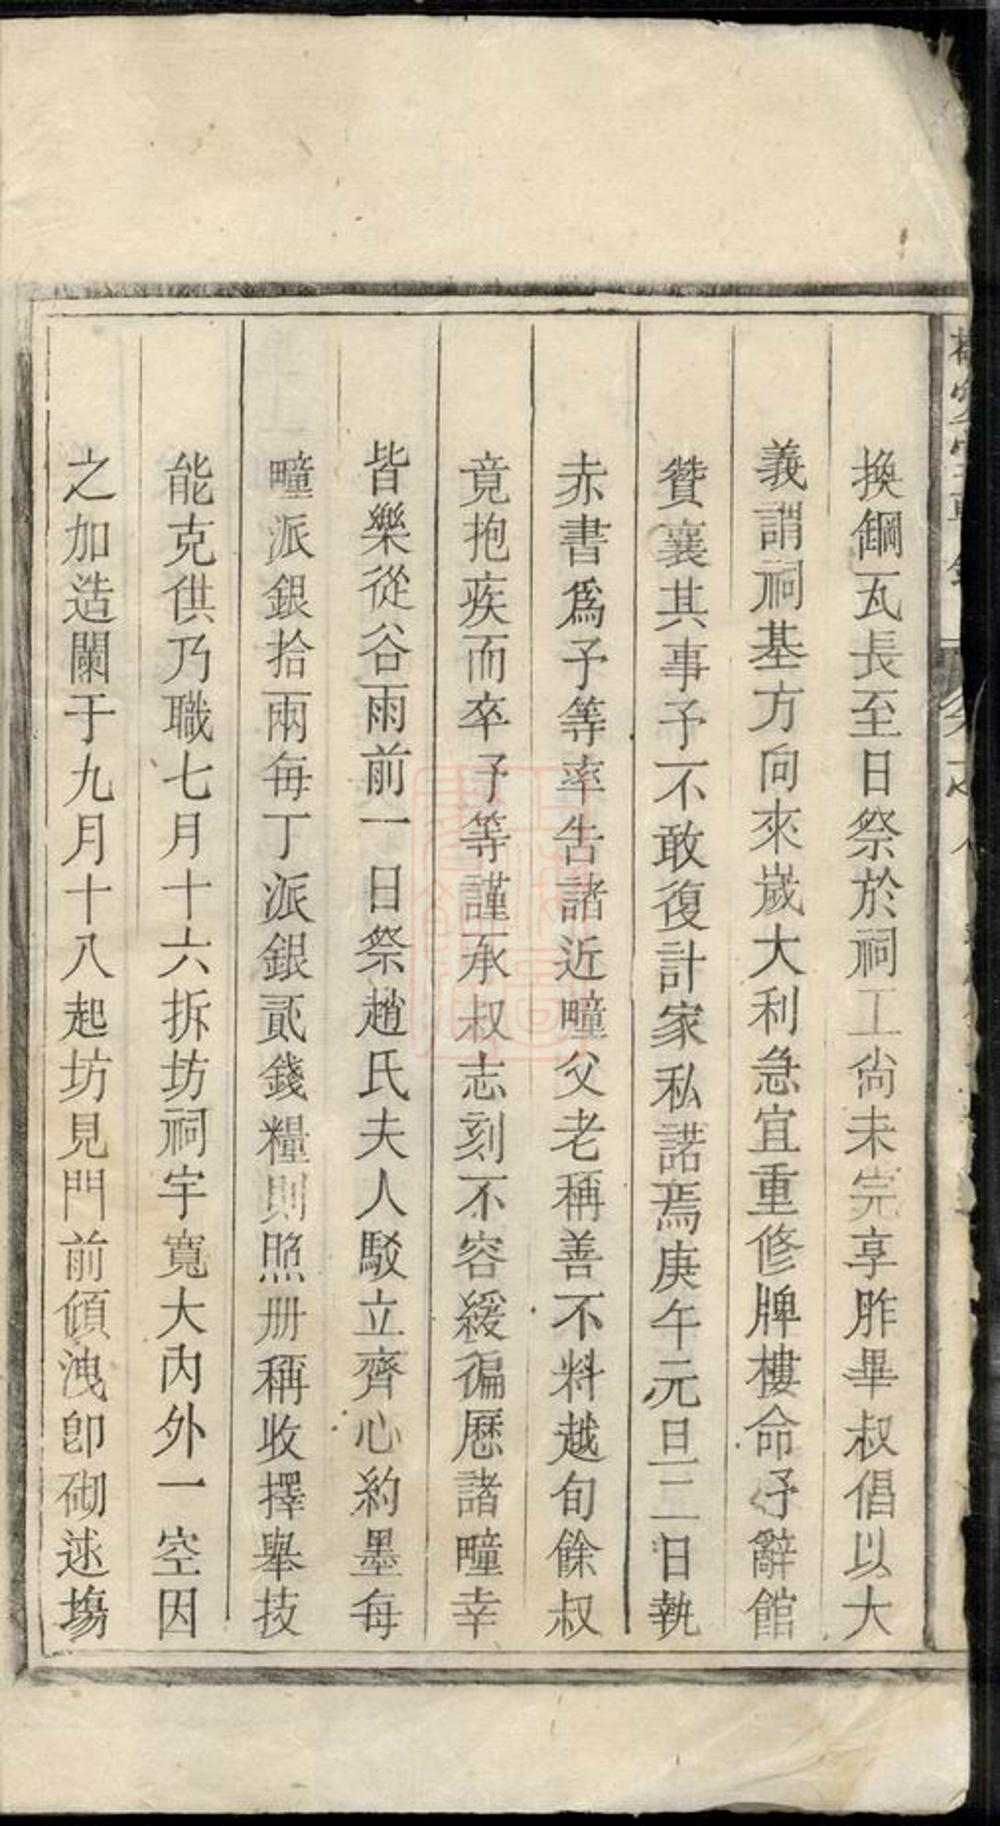 換鋼瓦長至日祭於祠工尚未完享胙畢叔倡以大
義謂祠基方向來嵗大利急宜重修牌樓命予辭館
贊襄其事予不敢復計家私諾焉庚午元旦二日執
赤書爲予等率告諸近疃父老稱善不料越旬餘叔
竟抱疾而卒予等謹承叔志刻不容緩徧厯諸疃幸
皆樂從谷雨前一日祭趙氏夫人駁立齊心約墨每
疃派銀拾兩每丁派銀貳錢糧則照册稱收擇舉技
能克供乃職七月十六拆坊祠宇寬大內外一空因
之加造闌于九月十八起坊見門前傾洩卽砌逑塲